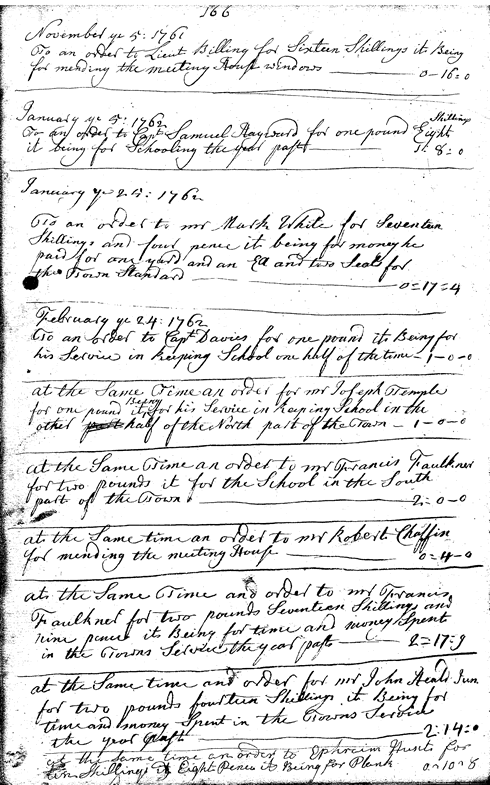 166
November ye 5: 1761
To an order to Lieut Billing for Sixteen Shillings it Being
for mending the meeting House windows 0-16:0
January ye 5: 1762
To an order to Capt Samuel Hayward for one pound Eight Shillings
it being for Schooling the year past 1:8:0
January ye 25: 1762
To an order to mr Mark White for Seventen
Shillings and four pence it being for money he
paid for one yard and an Ell and two Seals for
the Town Standard 0=17=4
February ye 24: 1762
To an order to Capt Davies for one pound it Being for
his Service in keeping School one half of the time 1-0-0
at the Same Time an order for mr Joseph Temple
for one pound it Being for his Service in keeping School in the
other half of the North part of the Town 1-0-0
at the Same Time an order to mr Francis Faulkner
for two pounds it for the School in the South
part of the Town 2:0-0
at the Same time an order to mr Robert Chaffin
for mending the meeting House 0=4-0
at the Same Time and order to mr Francis
Faulkner for two pounds Seventeen Shillings and
nine pence it Being for time and money Spent
in the Towns Service the year past 2=17=9
at the Same time and order for mr John Heald Jun
for two pounds fourteen Shillings it Being for
time and money Spent in the Towns Service
the year past 2:14:0
at the Same time an order to Ephreim Hunt for
ten Shillings & Eight Pence it Being for Plank 0=10=8